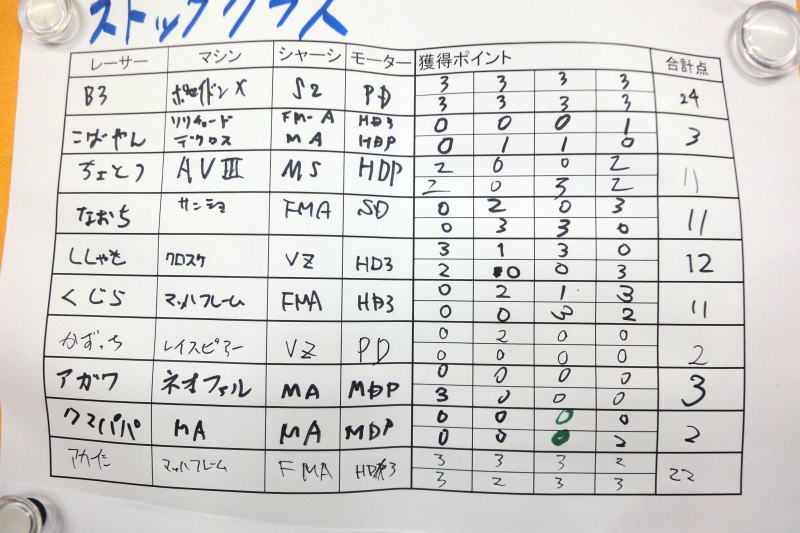 ストッククラス
レーサー マシン シャーシ モーター 獲得ポイント 合計点
B3 ポセイドンX S2 PD 3 3 3 3 24
3 3 3 3
こばやん リリチャード FM-A HD3 0 0 0 1 3
デクロス MA HDP 0 1 1 0
ちょとつ AVIII MS HDP 2 0 0 2 11
2 0 3 2
なおち サンショ FMA SD 0 2 0 3 11
0 3 3 0
ししゃも クロスケ VZ HD3 3 1 3 0 12
2 0 0 3
くじら マッハフレーム FMA HD3 0 2 1 3 11
0 0 3 2
かずっち レイスピアー VZ PD 0 2 0 0 2
0 0 0 0
アガワ ネオファル MA MDP 0 0 0 0 3
3 0 0 0
クマパパ MA MA MDP 0 0 0 0 2
0 0 0 2
マッハフレーム FMA HD3 3 3 3 2 22
3 2 3 3